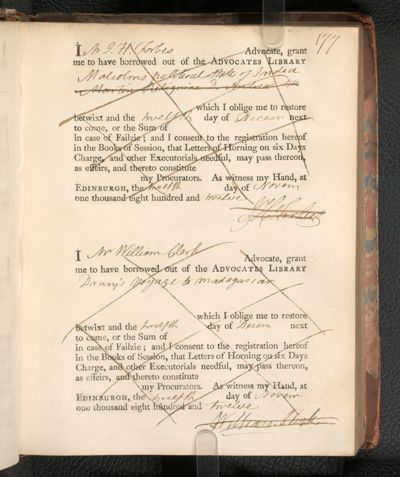 177
I Mr J. H. Forbes Advocate, grant
me to have borrowed out of the ADVOCATES LIBRARY
Malcolms political State of India
which I oblige me to restore
betwixt and the twelfth day of Decem next
to come, or the Sum of
in case of Failzie; and I consent to the registration hereof
in the Books of Session, that Letters of Horning on six Days
Charge, and other Executorials needful, may pass thereon,
as effeirs, and thereto constitute
my Procurators. As witness my Hand, at
EDINBURGH, the twelfth day of Novem
one thousand eight hundred and twelve
I Mr William Clerk
Advocate, grant
me to have borrowed out of the ADVOCATES LIBRARY
Drury's Voyage to Madagascar
which I oblige me to restore
betwixt and the twelfth day of Decem next
to come, or the Sum of
in case of Failzie; and I consent to the registration hereof
in the Books of Session, that Letters of Horning on six Days
Charge, and other Executorials needful, may pass thereon,
as effeirs, and thereto constitute
my Procurators. As witness my Hand, at
EDINBURGH, the twelfth day of Novem
one thousand eight hundred and twelve
William Clerk